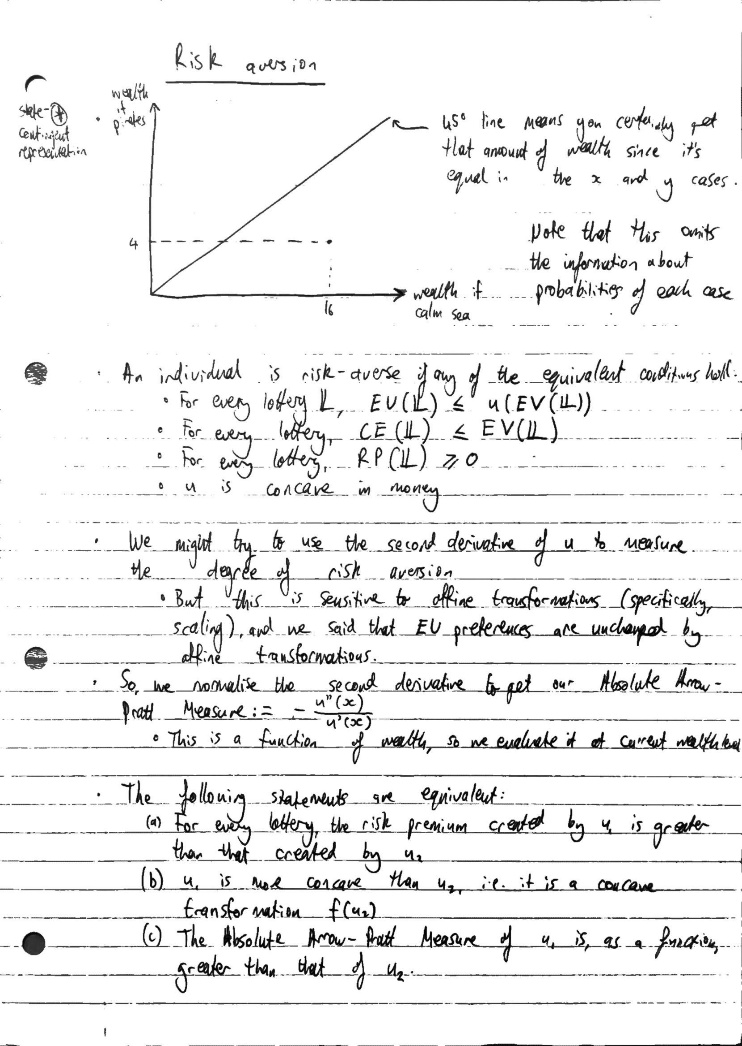 Risk aversion
state- *
contingent
representation
• wealth
if
pirates
45° line means you certainly get
that amount of wealth since it's
equal in the x and y cases.
4
Note that this omits
the information about
probabilities of each case
16
wealth if
calm sea
• An individual is risk-averse if any of the equivalent conditions hold.
• For every lottery 𝕃, EU(𝕃) ≤ u(EV(𝕃))
• For every lottery, CE(𝕃) ≤ EV(𝕃)
• For every lottery, RP(𝕃) ⩾ 0
• u is concave in money
• We might try to use the second derivative of u to measure
the degree of risk aversion
• But this is sensitive to affine transformations (specifically,
scaling), and we said that EU preferences are unchanged by
affine transformations.
• So, we normalise the second derivative to get our Absolute Arrow-
Pratt Measure := - u''(x)/u'(x)
• This is a function of wealth, so we evaluate it at current wealth level
• The following statements are equivalent:
(a) For every lottery, the risk premium created by u₁ is greater
than that created by u₂
(b) u₁ is more concave than u₂, i.e. it is a concave
transformation f(u₂)
(c) The Absolute Arrow-Pratt Measure of u₁ is, as a function,
greater than that of u₂.